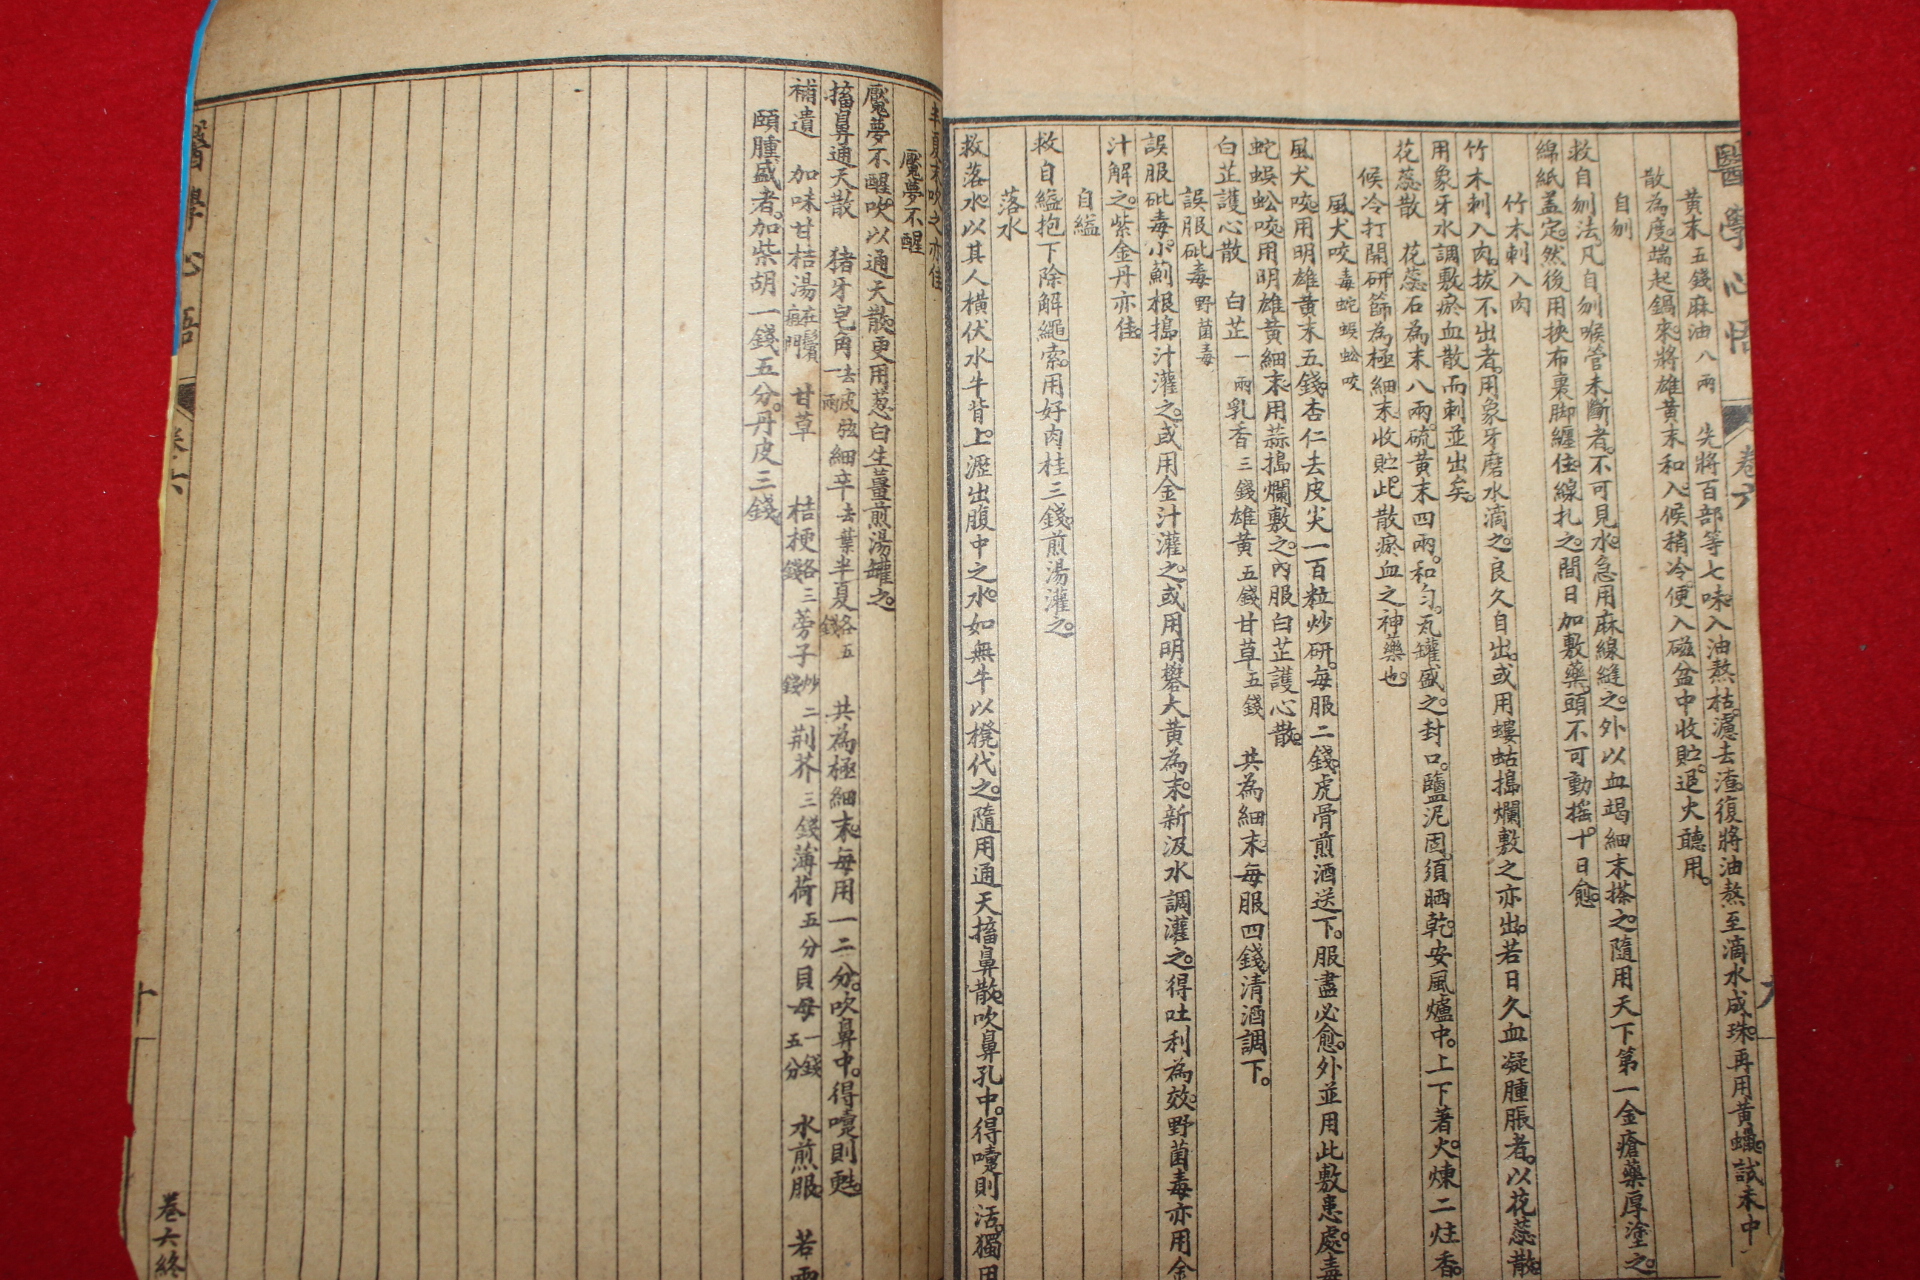 醫學心悟 卷六 九
黃末五錢麻油八兩 先將百部等七味入油熬枯濾去渣復將油熬至滴水成珠再用黃蠟試末中
散為度端起鍋來將雄黃末和入候稍冷便入磁盆中收貯退火聽用
自刎
救自刎法凡自刎喉管未斷者不可見水急用麻線縫之外以血竭細末搽之隨用天下第一金瘡藥厚塗之
綿紙蓋定然後用挾布裹脚纏住線扎之間日加敷藥頭不可動搖十日愈
竹木刺入肉
竹木刺入肉拔不出者用象牙磨水滴之良久自出或用螻蛄搗爛敷之亦出若日久血凝腫脹者以花蕊散
用象牙水調敷瘀血散而刺並出矣
花蕊散 花蕊石為末八兩硫黃末四兩和勻瓦罐盛之封口鹽泥固須晒乾安風爐中上下著火煉二炷香
候冷打開研篩為極細末收貯此散瘀血之神藥也
風犬咬毒蛇蜈蚣咬
風犬咬用明雄黃末五錢杏仁去皮尖一百粒炒研每服二錢虎骨煎酒送下服盡必愈外並用此敷患處毒
蛇蜈蚣咬用明雄黃細末用蒜搗爛敷之內服白芷護心散
白芷護心散 白芷一兩乳香三錢雄黃五錢甘草五錢 共為細末每服四錢清酒調下
誤服砒毒野菌毒
誤服砒毒小薊根搗汁灌之或用金汁灌之或用明礬大黃為末新汲水調灌之得吐利為效野菌毒亦用金
汁解之紫金丹亦佳
自縊
救自縊抱下除解繩索用好肉桂三錢煎湯灌之
落水
救落水以其人橫伏水牛背上瀝出腹中之水如無牛以櫈代之隨用通天搐鼻散吹鼻孔中得嚏則活獨用
半夏末吹之亦佳
魘夢不醒
魘夢不醒吹以通天散更用葱白生薑煎湯罐之
搐鼻通天散 猪牙皂角去皮弦一兩細辛去葉半夏各五錢 共為極細末每用一二分吹鼻中得嚏則甦
補遺 加味甘桔湯 甘草 桔梗各三錢蒡子炒二錢荆芥三錢薄荷五分貝母一錢五分 水煎服 若
頤腫盛者加柴胡一錢五分丹皮三錢
卷六
十
卷六終